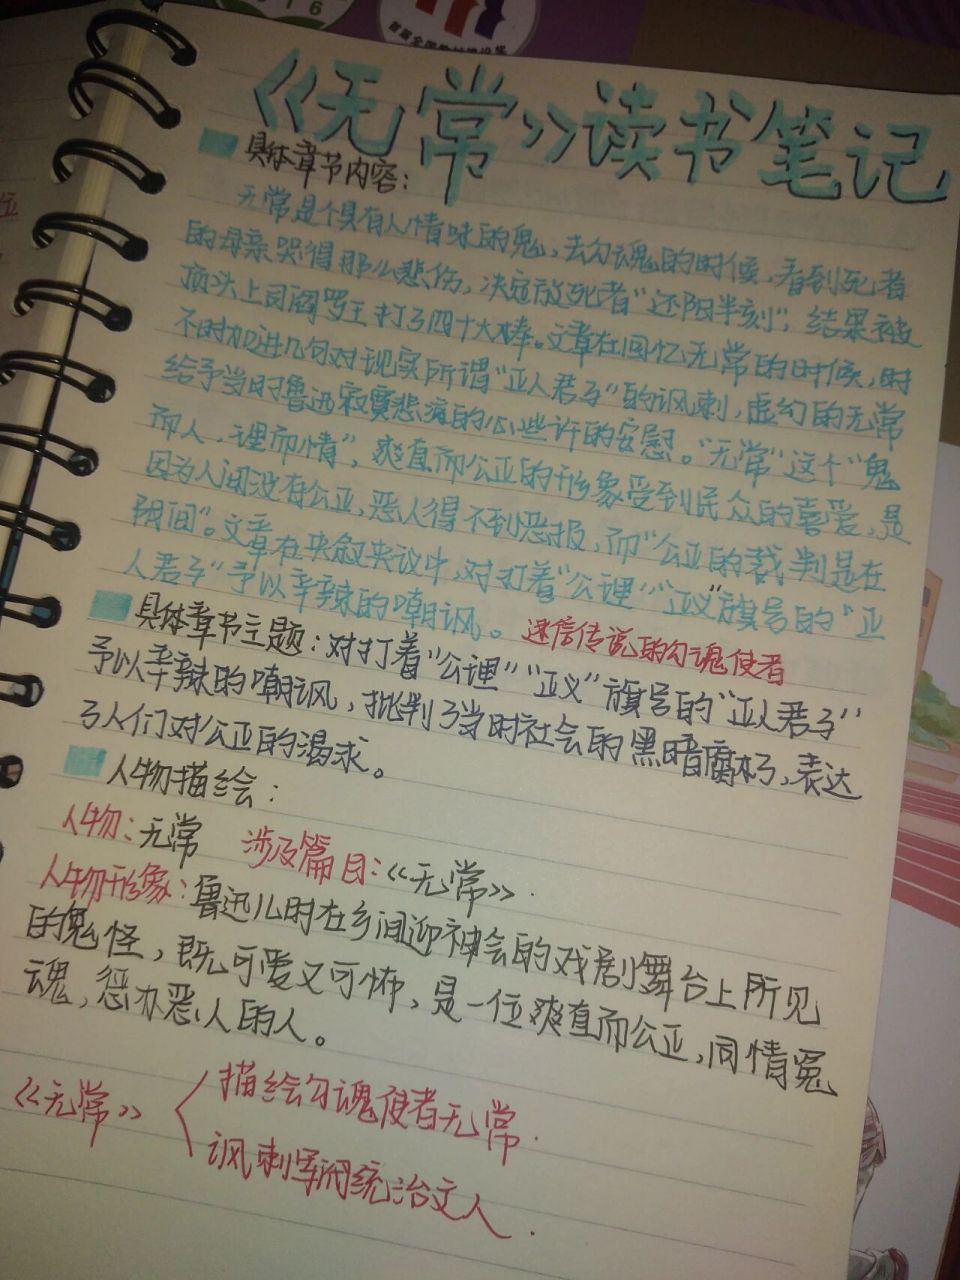 《无常》读书笔记
具体章节内容：
无常是个具有人情味的鬼，去勾魂的时候，看到死者
的母亲哭得那么悲伤，决定放死者“还阳半刻”，结果被
顶头上司阎罗王打了四十大棒。文章在回忆无常的时候，时
不时加进几句对现实所谓“正人君子”的讽刺，虚幻的无常
给予当时鲁迅寂寞悲凉的心些许的安慰。“无常”这个“鬼
而人，理而情”，爽直而公正的形象受到民众的喜爱，是
因为人间没有公正，恶人得不到恶报，而“公正的裁判是在
阴间”。文章在夹叙夹议中，对打着“公理”“正义”旗号的“正
人君子”予以辛辣的嘲讽。
迷信传说的勾魂使者
具体章节主题：对打着“公理”“正义”旗号的“正人君子”
予以辛辣的嘲讽，批判了当时社会的黑暗腐朽，表达
了人们对公正的渴求。
人物描绘：
人物：无常 涉及篇目：《无常》.
人物形象：鲁迅儿时在乡间迎神会的戏剧舞台上所见
的鬼怪，既可爱又可怖，是一位爽直而公正，同情冤
魂，惩办恶人的人。
《无常》
描绘勾魂使者无常.
讽刺军阀统治文人.